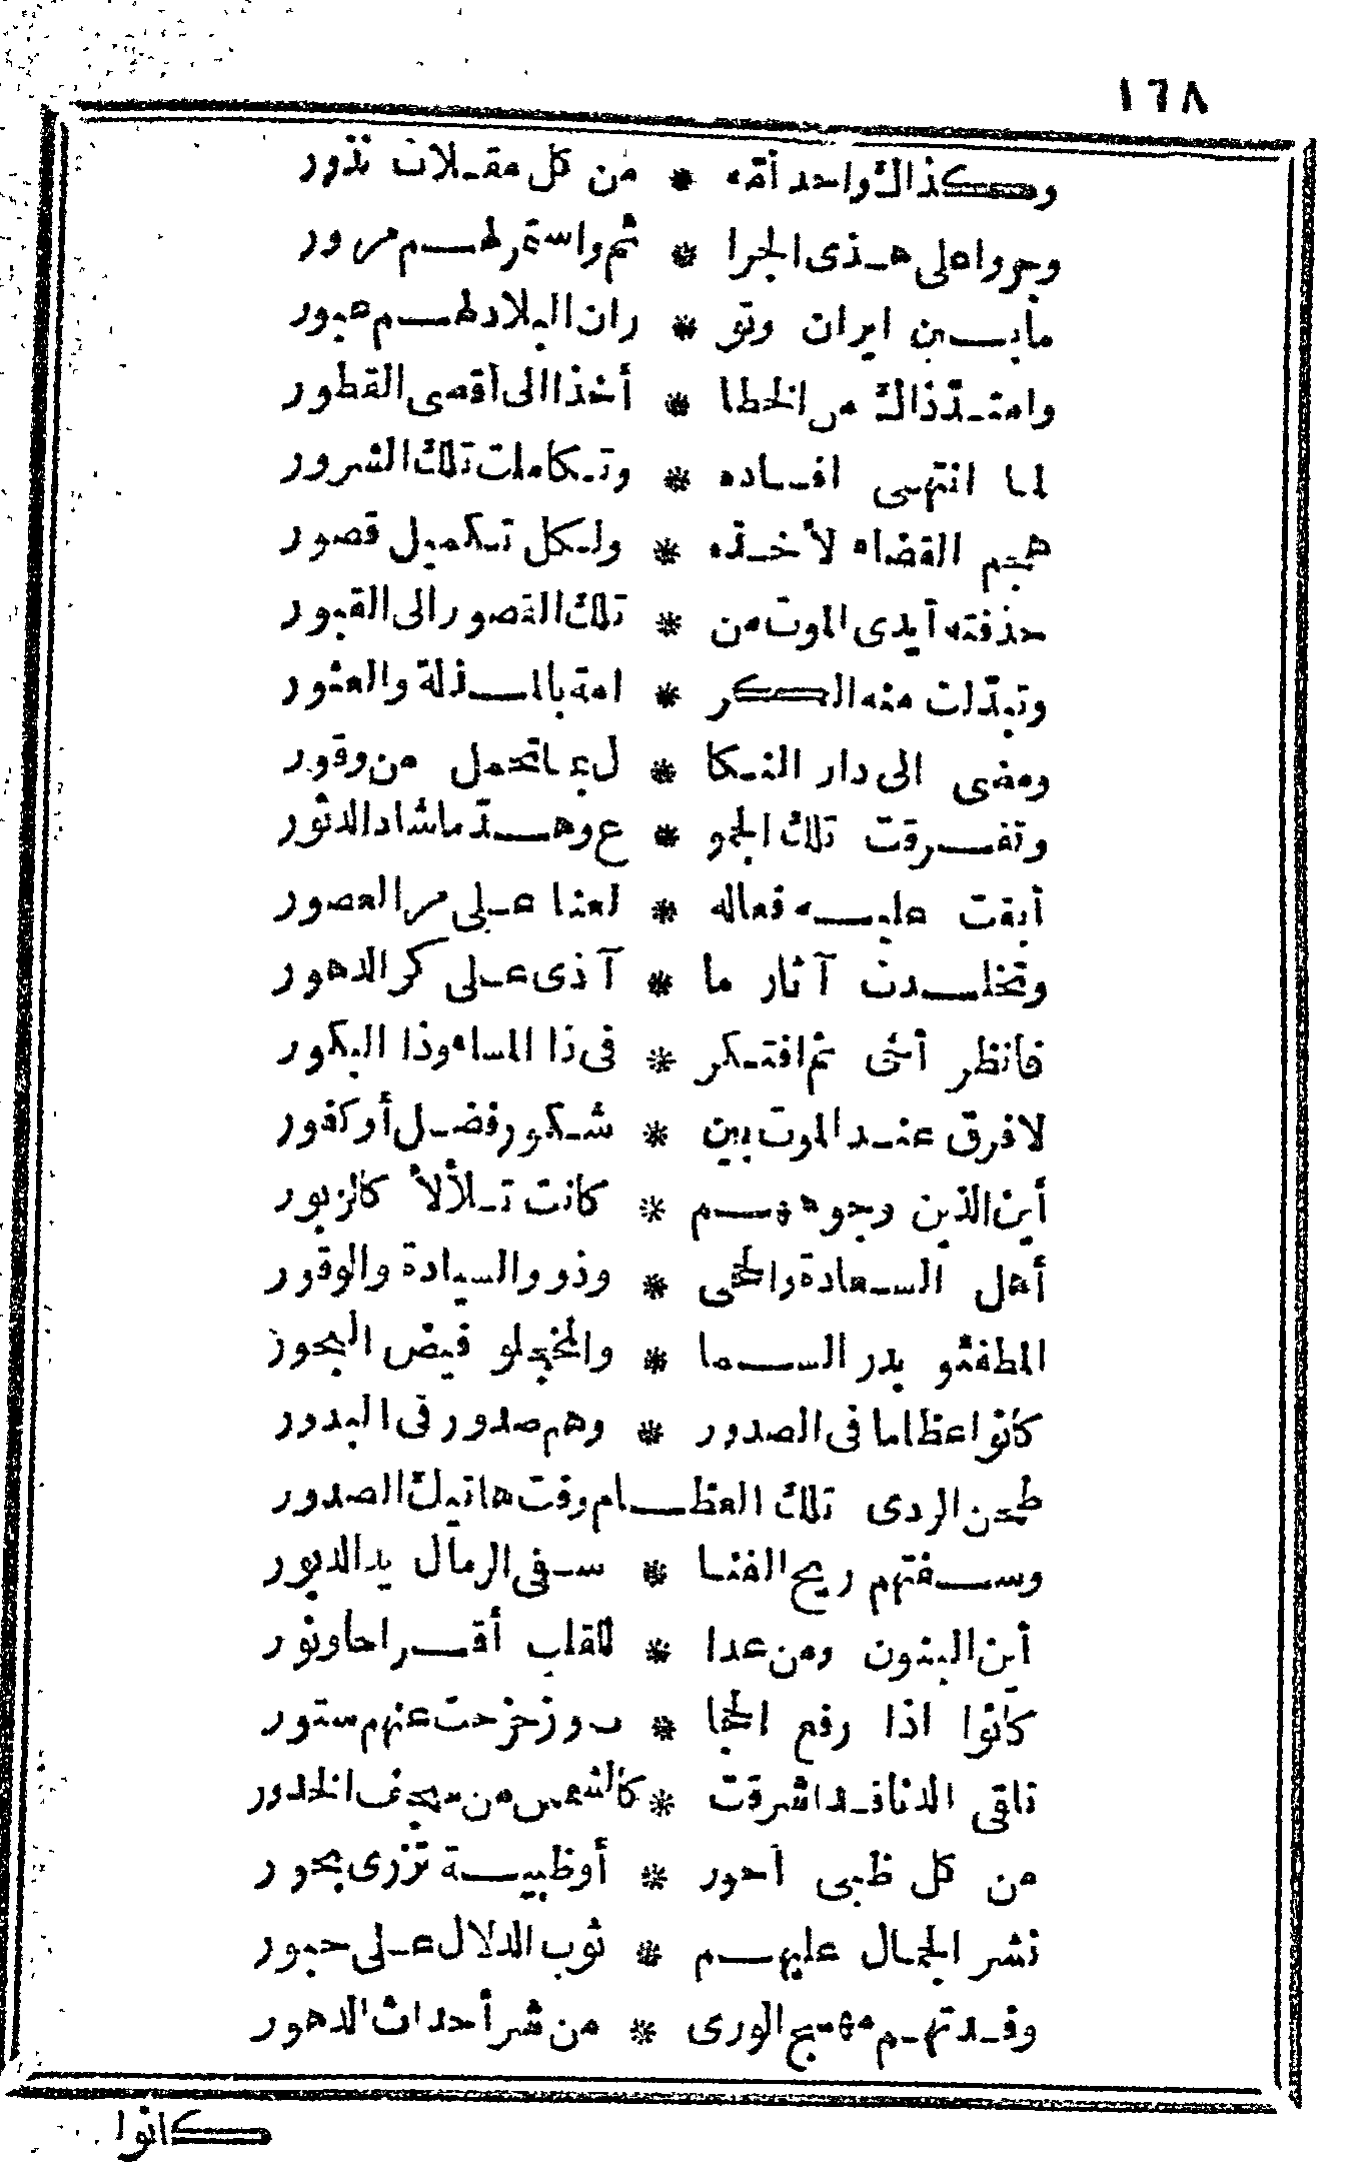 ١٦٨
وكذاك واحد أمّه * من كل مقلات نذور
وجروا على هذى الجرا * ثم واستمر لهم مرور
ما بين ايران وتو * ران البلاد لهم عبور
وامتدّ ذاك من الخطا * أخذا الى أقصى القطور
لما انتهى افساده * وتكاملت تلك الشرور
هجم القضاء لأخذه * ولكل تكميل قصور
حذفته أيدى الموت من * تلك القصور الى القبور
وتبدّلت منه الكر * امة بالمذلة والعثور
ومضى الى دار النكا * ل بما تحمل من وقور
وتفرقت تلك الجمو * ع وهدّ ما شاد الدثور
أبقت عليه فعاله * لعنا على مر العصور
وتخلدت آثار ما * آذى على كر الدهور
فانظر أخى ثم افتكر * فى ذا المساء وذا البكور
لا فرق عند الموت بين * شكور فضل أو كفور
أين الذين وجوههم * كانت تلألأ كالزبور
أهل السعادة والحجى * وذوو السيادة والوقور
المطفئو بدر السما * والمخجلو فيض البحور
كانوا عظاما فى الصدور * وهم صدور فى البدور
طحن الردى تلك العظام وفت هاتيك الصدور
وسفتهم ريح الفنا * سفى الرمال يد الدبور
أين البنون ومن غدا * للقلب أفراحا ونور
كانوا اذا رفع الحجا * ب وزحزحت عنهم ستور
تلقى الدنا قد اشرقت * كالشمس من سجف الخدور
من كل ظبى أحور * أو ظبية تزرى بحور
نشر الجمال عليهم * ثوب الدلال على حبور
وفدتهم مهج الورى * من شر أحداث الدهور
كانوا